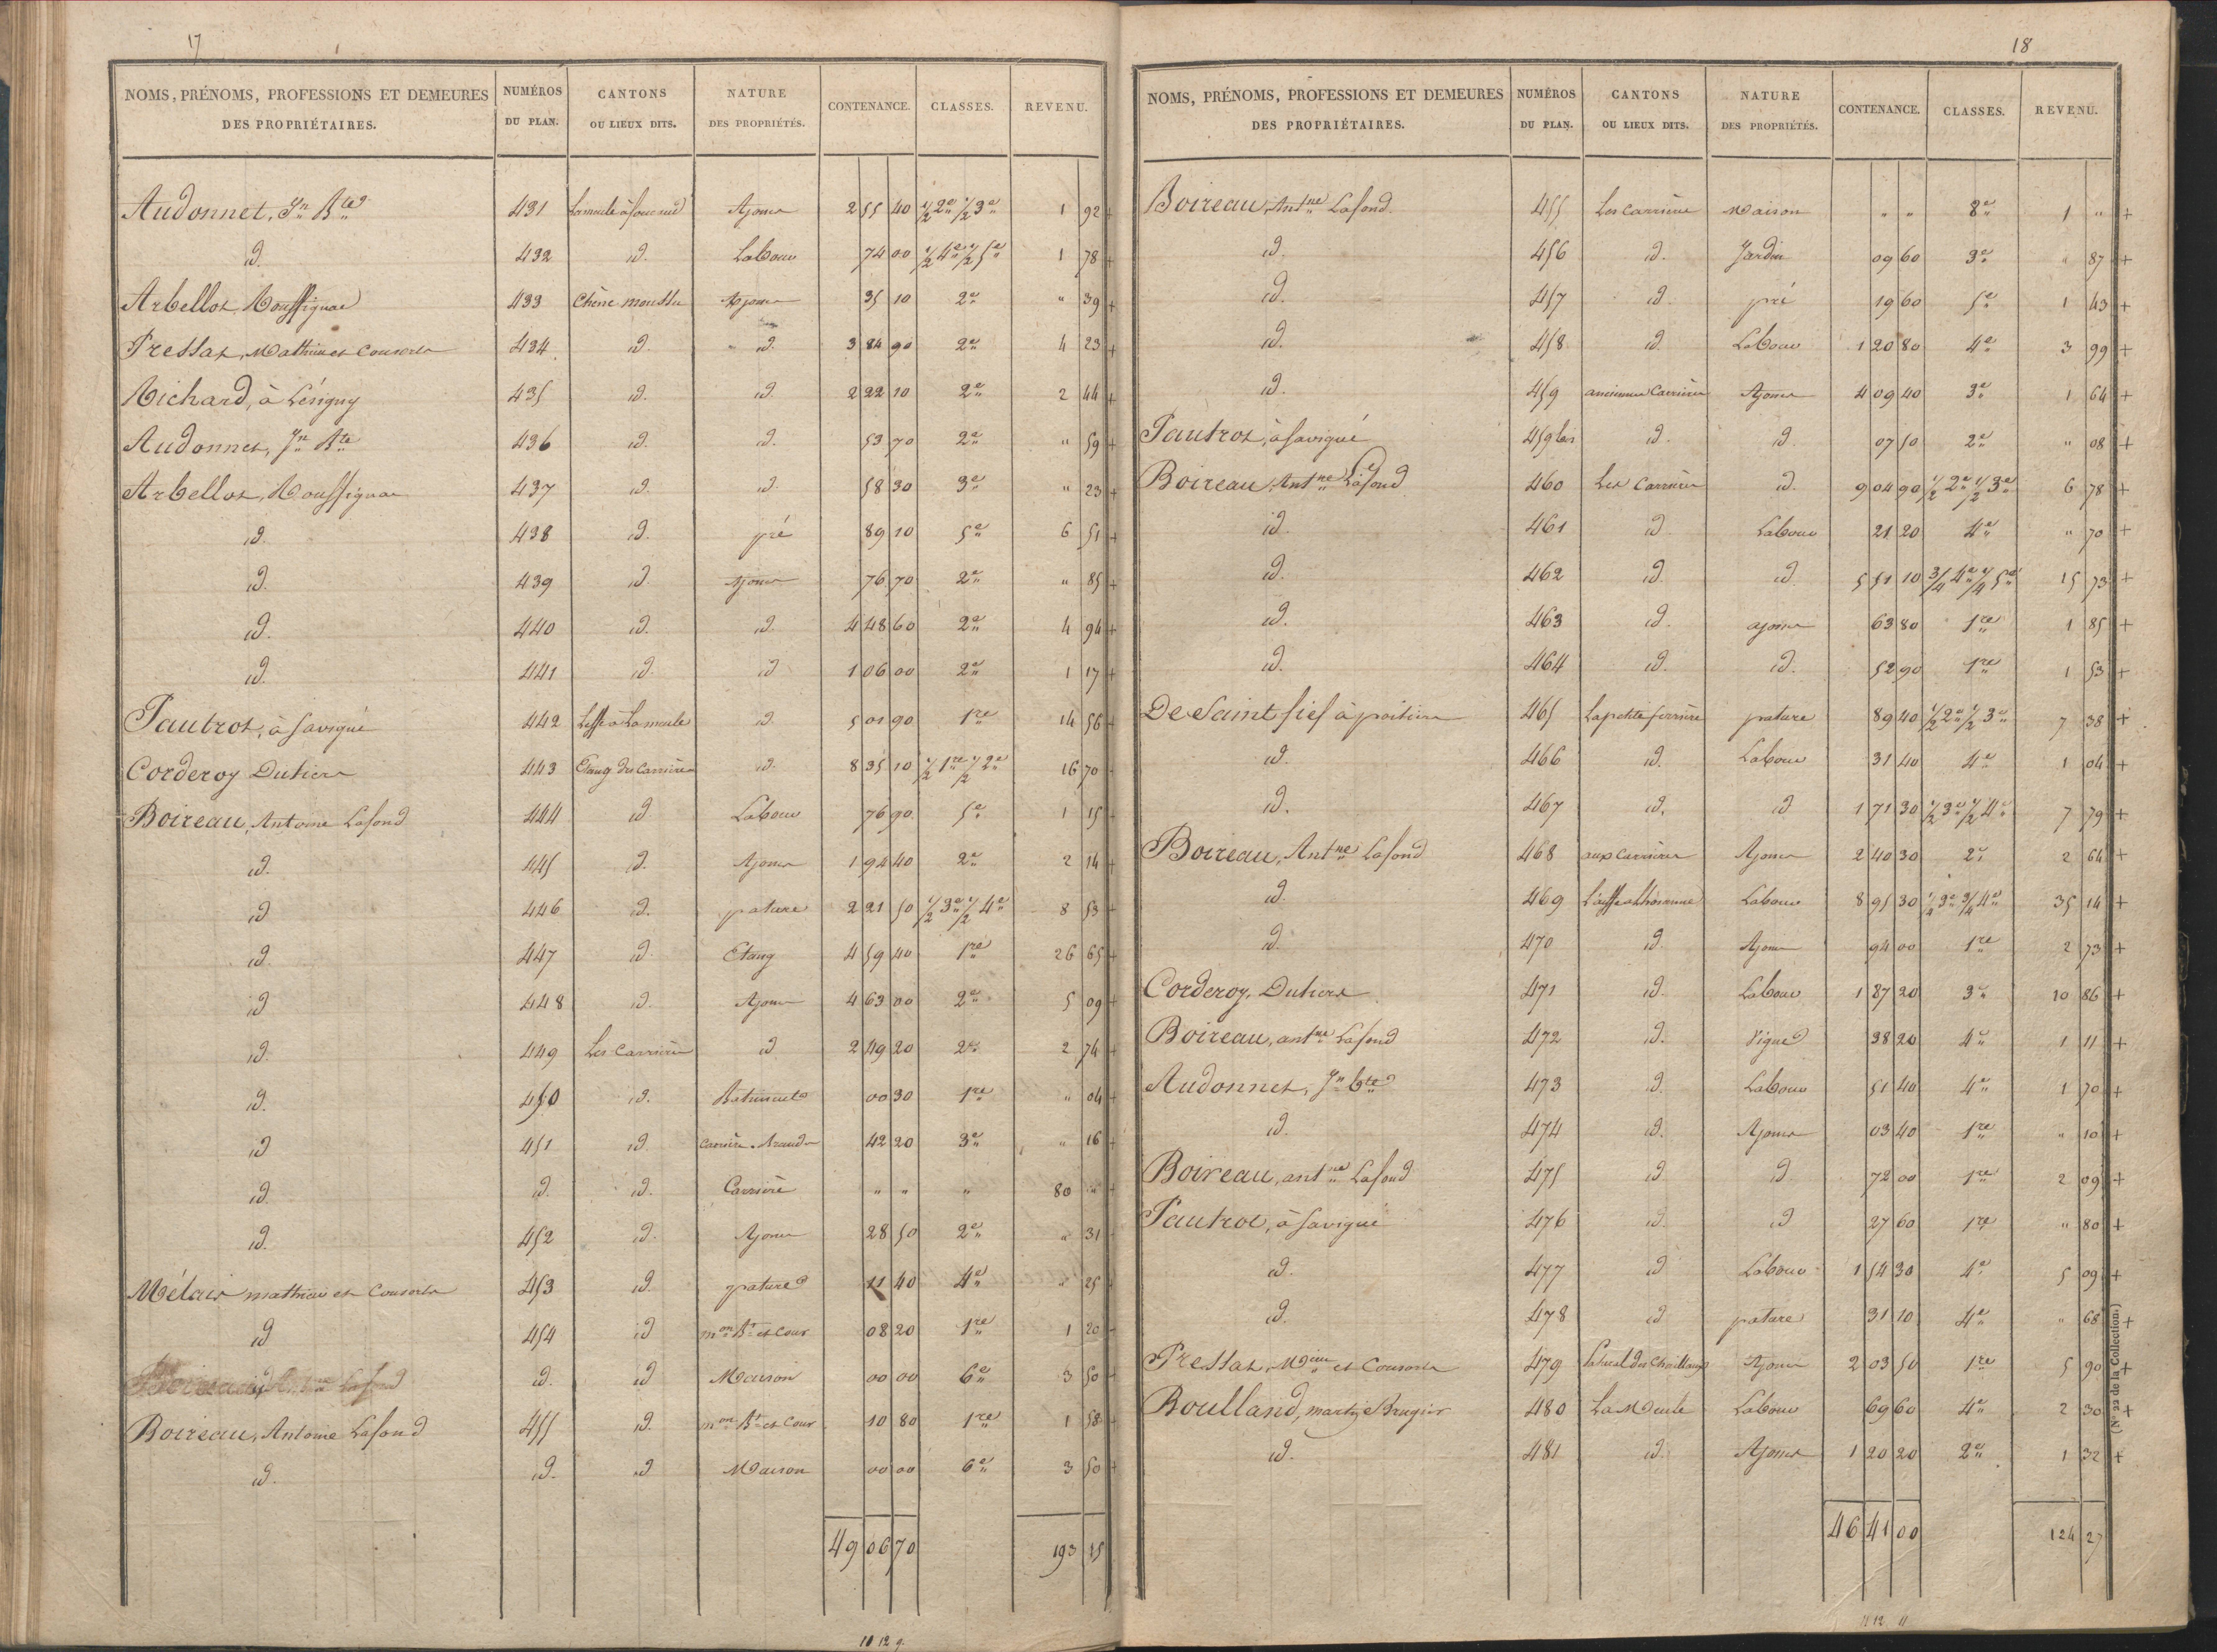 17
NOMS, PRÉNOMS, PROFESSIONS ET DEMEURES DES PROPRIÉTAIRES. NUMÉROS DU PLAN. CANTONS OU LIEUX DITS. NATURE DES PROPRIÉTÉS. CONTENANCE. CLASSES. REVENU.
Audonnet, Jn Bte 431 Ajoncs 2 55 40 1/2 2e 1/2 3e 1 92 +
id. 432 id. Labour 74 00 1/2 4e 1/2 5e 1 78 +
Arbellot Rouffignac 433 Chêne moussu Ajoncs 35 10 2e " 39 +
Pressat, Mathieu et Consorts 434 id. id. 3 84 90 2e 4 23 +
Richard, à Lésigny 435 id. id. 2 22 10 2e 2 44 +
Audonnet, Jn Bte 436 id. id. 53 70 2e " 59 +
Arbellot, Rouffignac 437 id. id. 58 30 3e " 23 +
id. 438 id. pré 89 10 5e 6 51 +
id. 439 id. Ajoncs 76 70 2e " 85 +
id. 440 id. id. 4 48 60 2e 4 94 +
id. 441 id. id 1 06 00 2e 1 17 +
Pautrot, à Savigné 442 id. 5 01 90 1re 14 56 +
Corderoy Dutiers 443 Etang des Carrières id. 8 35 10 1/2 1re 1/2 2e 16 70 +
Boireau, Antoine Lafond 444 id Labour 76 90 5e 1 15 +
id. 445 id. Ajoncs 1 94 40 2e 2 14 +
id 446 id. pature 2 21 50 1/2 3e 1/2 4e 8 53 +
id. 447 id. Etang 4 59 40 1re 26 65 +
id 448 id. Ajoncs 4 63 00 2e 5 09 +
id. 449 Les Carrières id 2 49 20 2e 2 74 +
id. 450 id. Batiments 00 30 1re " 04 +
id 451 id. Carrière 42 20 3e " 16 +
id. id. id. Carrière " " " 80 " +
id. 452 id. Ajoncs 28 50 2e " 31 +
Mélais mathieu et Consorts 453 id. pature 11 40 4e " 25 +
id 454 id mon Bt et Cour 08 20 1re 1 20 +
id. id. id Maison 00 00 6e 3 50 +
Boireau, Antoine Lafond 455 id. mon Bt et Cour 10 80 1re 1 58 +
id. id. id Maison 00 00 6e 3 50 +
49 06 70 193 75
10 12 9
18
NOMS, PRÉNOMS, PROFESSIONS ET DEMEURES DES PROPRIÉTAIRES. NUMÉROS DU PLAN. CANTONS OU LIEUX DITS. NATURE DES PROPRIÉTÉS. CONTENANCE. CLASSES. REVENU.
Boireau, Antne Lafond 455 Les Carrières Maison " " 8e 1 " +
id. 456 id. Jardin 09 60 3e " 87 +
id. 457 id. pré 19 60 5e 1 43 +
id. 458 id. Labour 1 20 80 4e 3 99 +
id. 459 anciennes Carrières Ajoncs 4 09 40 3e 1 64 +
Pautrot, à Savigné 459 bis id. id. 07 50 2e " 08 +
Boireau, Antne Lafond 460 Les Carrières id. 9 04 90 1/2 2e 1/2 3e 6 78 +
id. 461 id Labour 21 20 4e " 70 +
id. 462 id. id. 5 51 10 3/4 4e 1/4 5e 15 73 +
id. 463 id. ajoncs 63 80 1re 1 85 +
id. 464 id. id. 52 90 1re 1 53 +
De Saint fief à poitiers 465 La petite ferrière pature 89 40 1/2 2e 1/2 3e 7 38 +
id. 466 id. Labour 31 40 4e 1 04 +
id. 467 id. id 1 71 30 1/2 3e 1/2 4e 7 79 +
Boireau, Antne Lafond 468 aux Carrières Ajoncs 2 40 30 2e 2 64 +
id. 469 Labour 8 95 30 1/4 3e 3/4 4e 35 14 +
id. 470 id. Ajoncs 94 00 1re 2 73 +
Corderoy, Dutiers 471 id. Labour 1 87 20 3e 10 86 +
Boireau, antne Lafond 472 id. Vigne 38 20 4e 1 11 +
Audonnet, Jn bte 473 id. Labour 51 40 4e 1 70 +
id. 474 id. Ajoncs 03 40 1re " 10 +
Boireau, antne Lafond 475 id id. 72 00 1re 2 09 +
Pautrot, à Savigné 476 id. id 27 60 1re " 80 +
id. 477 id Labour 1 54 30 4e 5 09 +
id. 478 id pature 31 10 4e " 68 +
Pressat, Mieu et Consorts 479 Ajoncs 2 03 50 1re 5 90 +
Boulland, martij Brugier 480 La Meule Labour 69 60 4e 2 30 +
id. 481 id. Ajoncs 1 20 20 2e 1 32 +
46 41 00 124 27
(N° 22 de la Collection.)
11 12 11